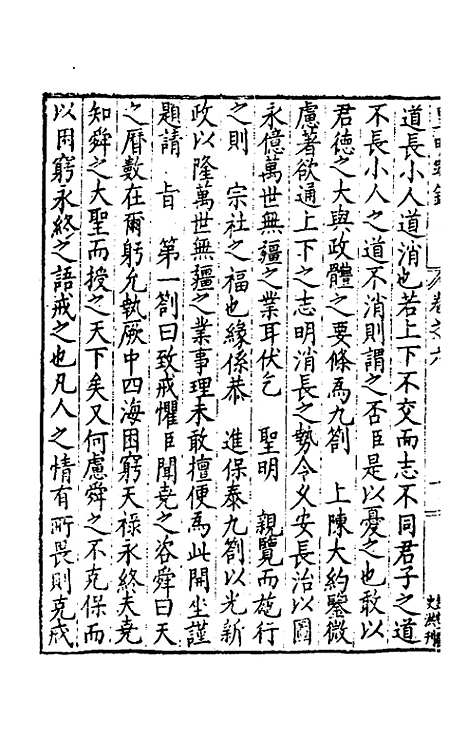 道長小人道消也若上下不交而志不同君子之道
不長小人之道不消則謂之否臣是以憂之也敢以
君德之大與政體之要條為九劄　上陳大約鑒微
慮著欲通上下之志明消長之勢令乂安長治以圖
永億萬世無疆之業耳伏乞　聖明　親覽而施行
之則　宗社之福也緣係恭　進保泰九劄以光新
政以隆萬世無疆之業事理未敢擅便為此開坐謹
題請　旨　第一劄曰致戒懼臣聞堯之咨舜曰天
之曆數在爾躬允執厥中四海困窮天祿永終夫堯
知舜之大聖而授之天下矣又何慮舜之不克保而
以困窮永終之語戒之也凡人之情有所畏則克戒